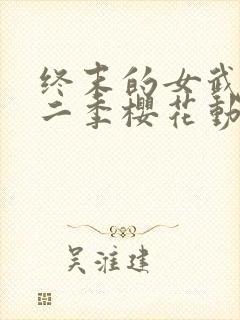 终末的女武
二季樱花動
吴淮建